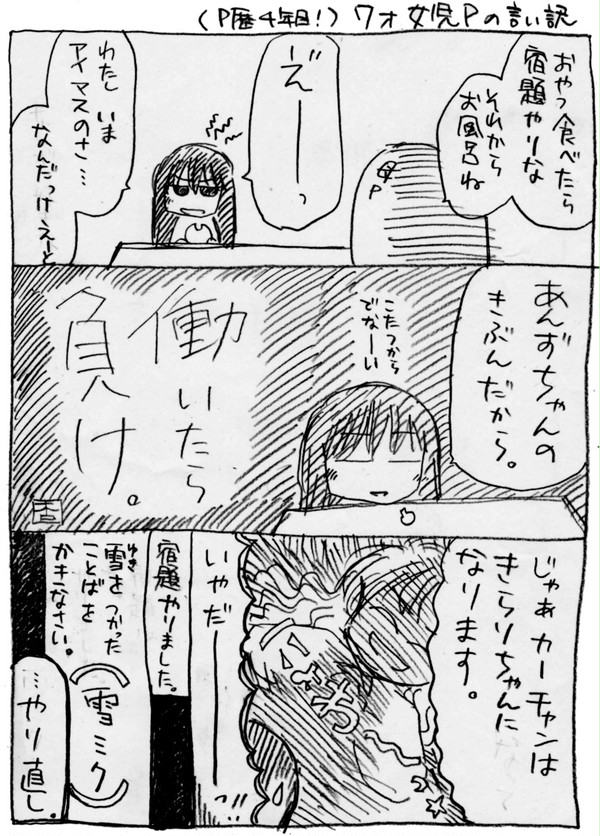 (P歴4年目!) ワォ女児Pの言い訳
おやつ食べたら
宿題やりな
それから
お風呂ね
母P
ぶーーっ
わたし いま
アイマスのさ…
なんだっけ えーと
あんずちゃんの
きぶんだから。
こたつから
でなーい
働いたら
負け。
杏
じゃぁカーチャンは
きらりちゃんに
なります。
いやだーーーっ
宿題やりました。
雪をつかった
ゆき
ことばを
かきなさい。
(雪ミク)
…やり直し。